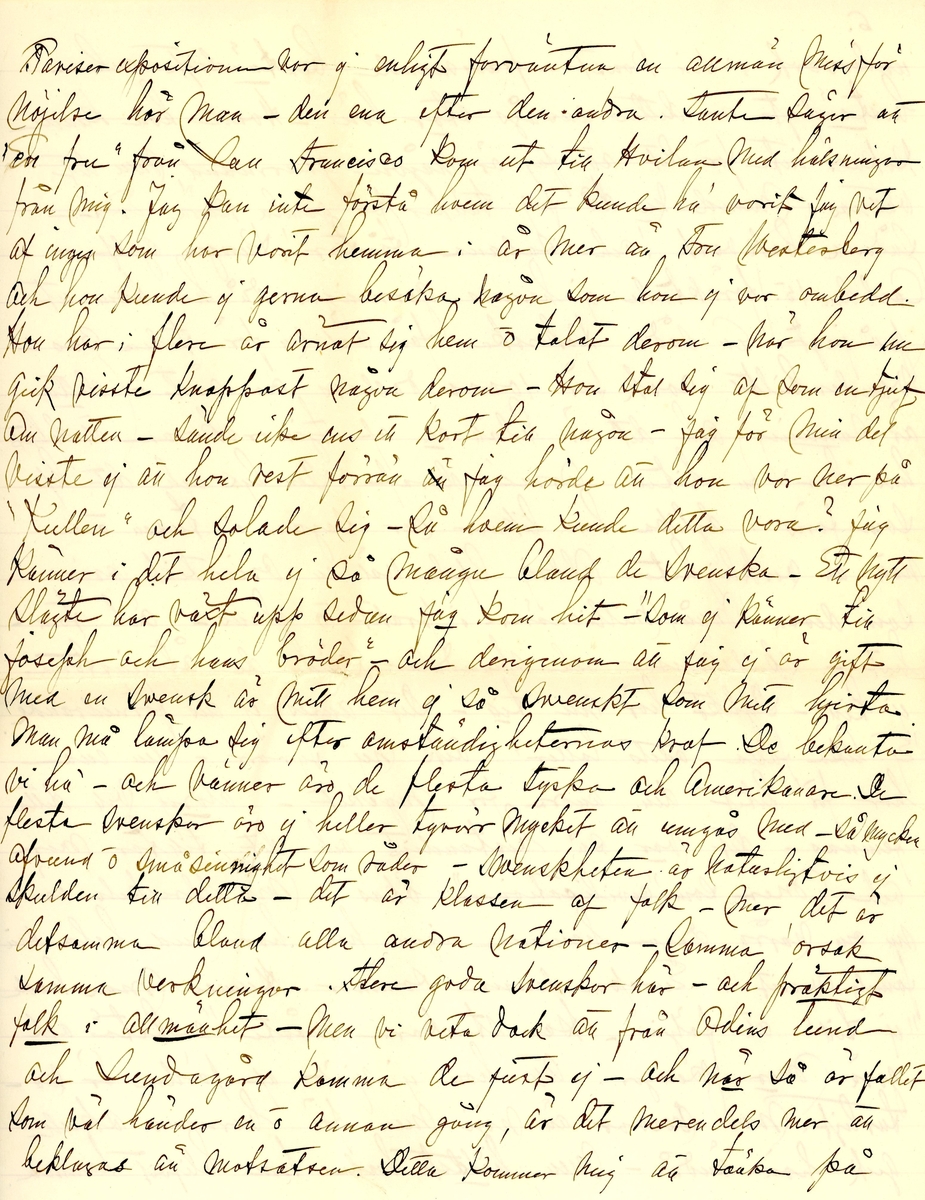 Pariser expositionen var ej enligt förväntan en allmän missför
nöjelse hör man – den ena efter den andra. Tante säger att
"en fru" från San Francisco kom ut till Hvilan med hälsningar
från mig. Jag kan inte förstå hvem det kunde ha vorit jag vet
af ingen som har vorit hemma i år mer än Fru Westerberg
och hon kunde ej gerna besöka någon som hon ej var ombedd.
Hon har i flere år ärnat sig hem o talat derom – når hon nu
gick visste knappast någon derom – Hon stal sig af som en tjuf
om natten – sände icke ens ett kort till någon – jag för min del
visste ej att hon rest förrän jag hörde att hon var ner på
"Kullen" och solade sig – så hvem kunde detta vara? Jag
känner i det hela ej så mången bland de Svenska – Ett nytt
slägte har växt upp sedan jag kom hit – "som ej känner till
Joseph och hans bröder" – och derigenom att jag ej är gift
med en svensk är mitt hem ej så svenskt som mitt hjerta
Man må lämpa sig efter omständigheternas kraf. De bekanta
vi ha – och vänner äro de flesta tyska och Amerikanare. De
flesta svenskar äro ej heller tyvärr mycket att umgås med – så mycken
afvund o småsinnighet som råder – svenskheten är naturligtvis ej
skulden till detta – det är klassen af folk – mer det är
detsamma bland alla andra nationer – Samma orsak
samma verkningar. Flere goda svenskar här – och präktigt
folk i allmänhet – Men vi veta dock att från Odins lund
och Lundagård komma de just ej – och når så är fallet
som väl händer en o annan gång, är det merendels mer att
beklagas än motsatsen. Detta kommer mig att tänka på